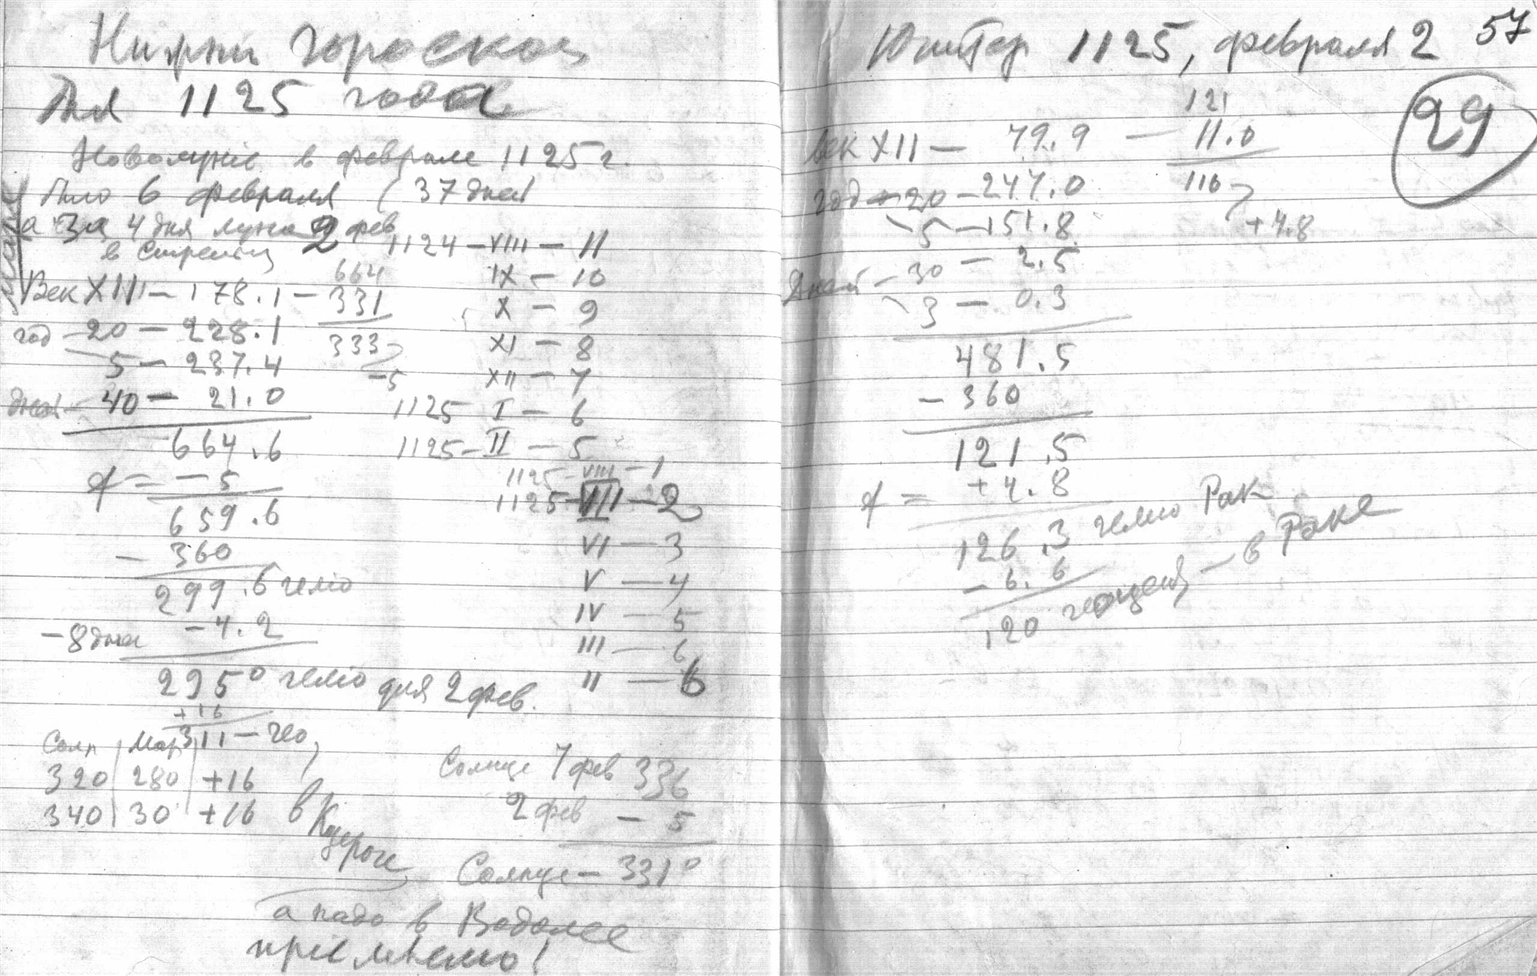 Нижний гороскоп
Для 1125 года
Новолуние в феврале 1125 г.
было 6 февраля (37 дней
а за 4 дня луна 2 фев
в Стрельц
1124 – VIII – 11
IX – 10
X – 9
XI – 8
XII – 7
1125 I – 6
1125 – II – 5
1125 – VIII – 1
1125 – VII – 2
VI – 3
V – 4
IV – 5
III – 6
II – 6
Марс
Век XII – 178.1 –
664
331
333
–5
год – 20 – 228.1
5 – 237.4
дней – 40 – 21.0
664.6
– 5
659.6
– 360
299.6 гелио
– 8 дней – 4.2
295° гелио для 2 фев.
+16
311 – гео
Солн | Мар
320 | 280 | +16
340 | 30 | +16
в Козероге
Солнце 7 фев 336
2 фев – 5
Солнце – 331°
а надо в Водолее
приемлемо!
57
Юпитер 1125, февраля 2
29
Век XII – 79.9 –
121
11.0
110
+4.8
год – 20 – 247.0
5 – 151.8
Дней – 30 – 2.5
3 – 0.3
481.5
– 360
121.5
+ 4.8
126.3 гелио Рак
– 6.6
120 геоцентр – в Раке